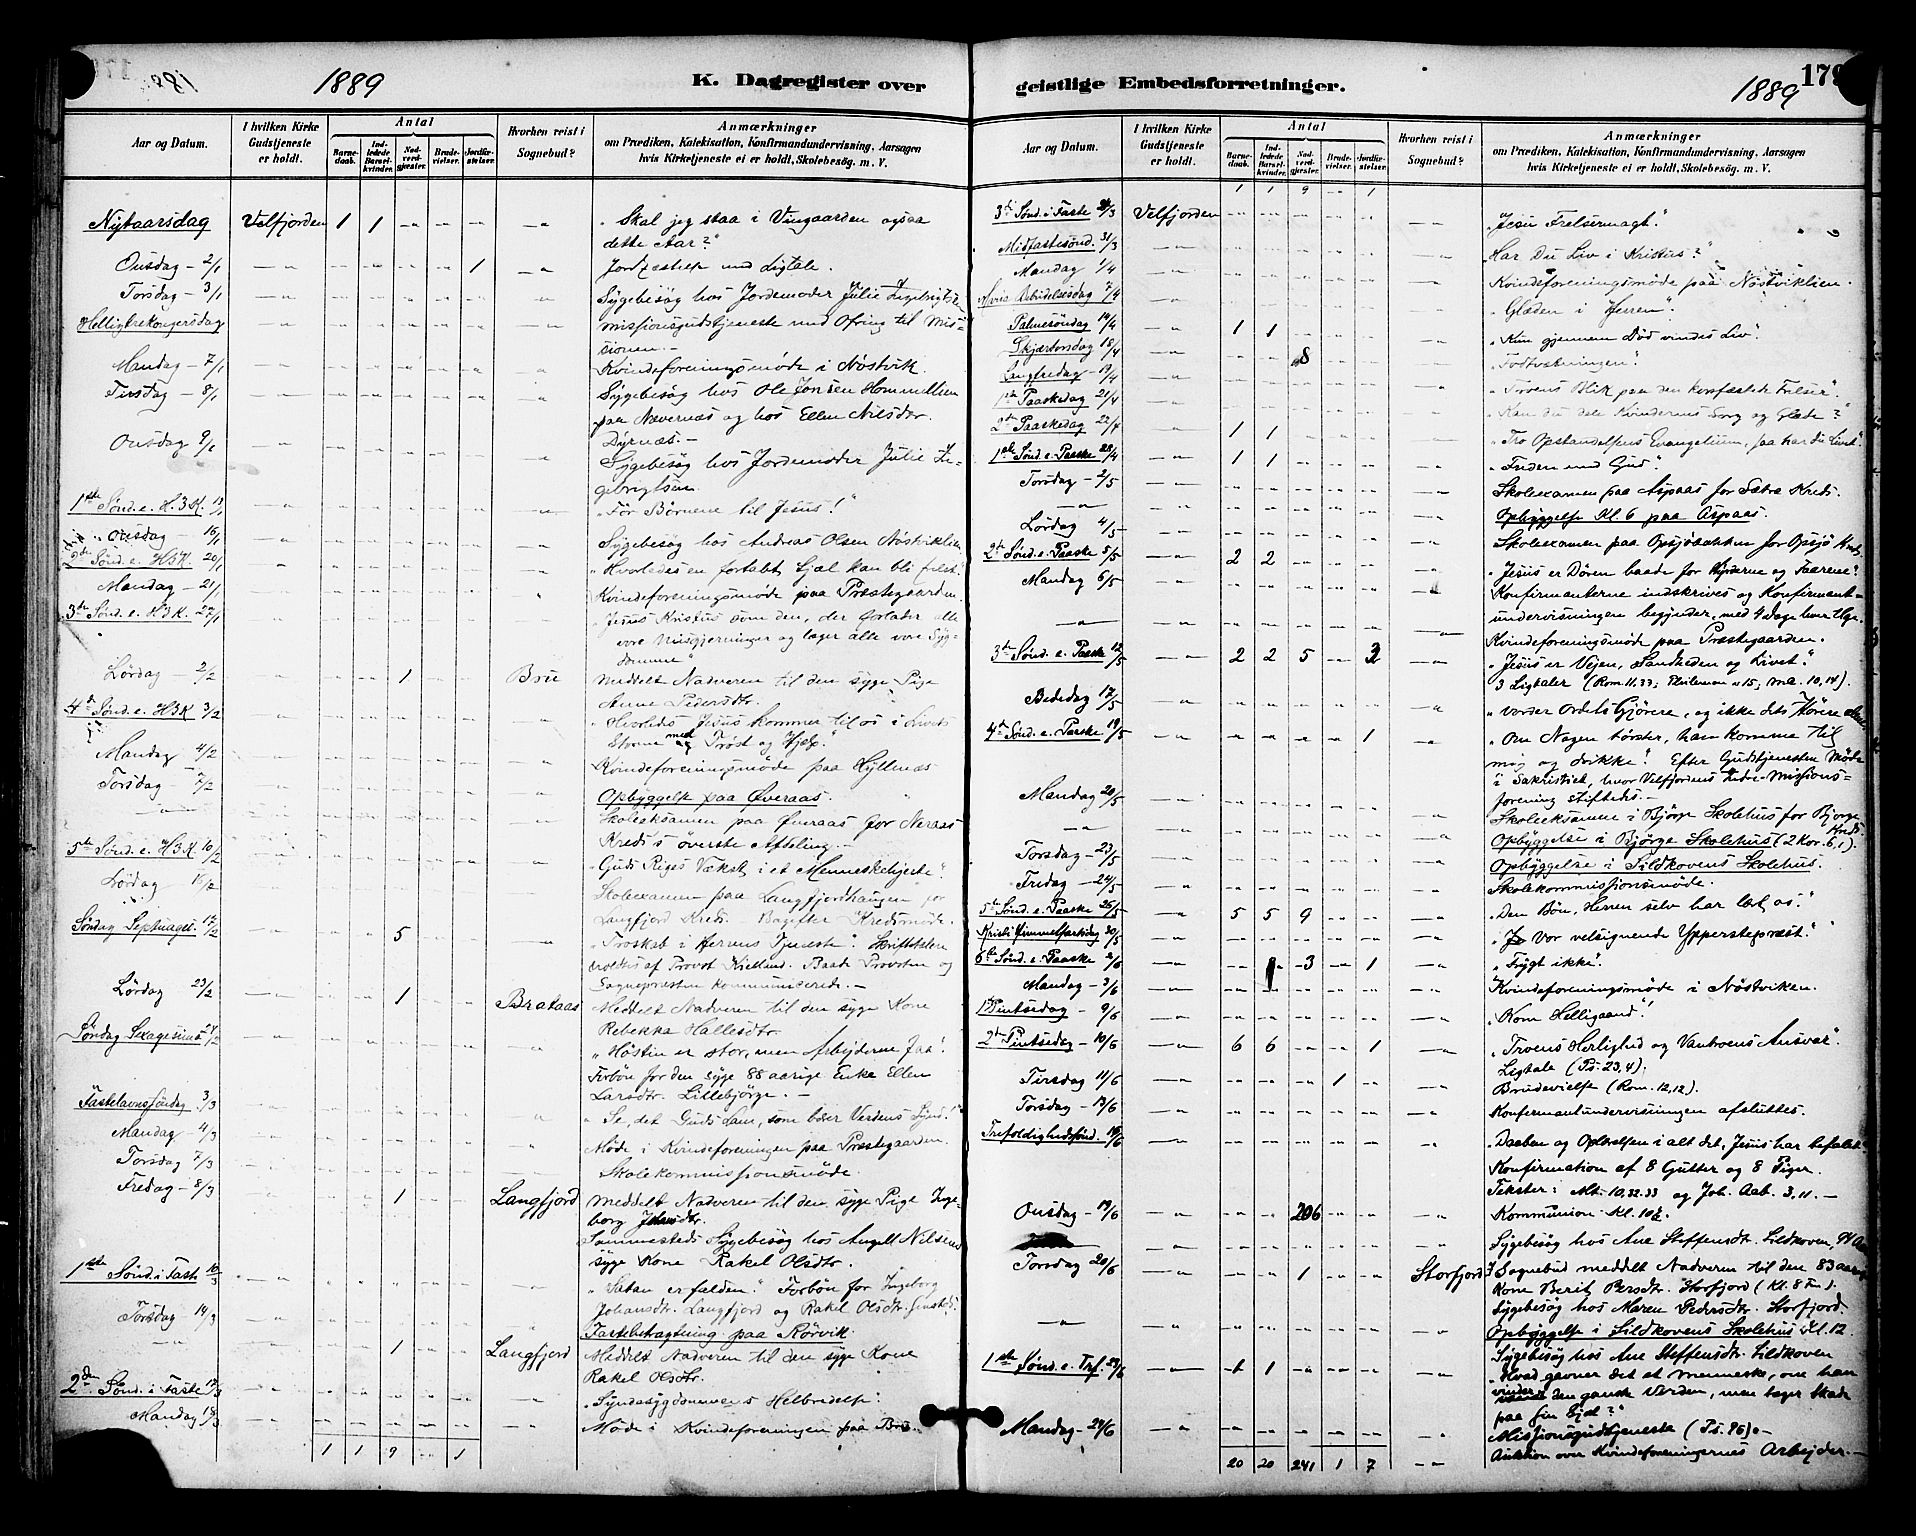 1889
K. Dagregister over
Aar og Datum.
I hvilken Kirke Gudstjeneste er holdt.
Antal
Barne-daab.
Ind-ledede Barsel-kvinder.
Nad-verd-gjester.
Brude-vielser.
Jordfæ-stelser.
Hvorhen reist i Sognebud?
Anmærkninger
om Prædiken, Katekisation, Konfirmandundervisning, Aarsagen
hvis Kirketjeneste ei er holdt, Skolebesøg. m. V.
Nytaarsdag Velfjorden 1 1 „Skal jeg staa i Vingaarden ogsaa
dette Aar?"
Onsdag - 2/1 1 Jordfæstelse med Ligtale.
Torsdag - 3/1 Sygebesøg hos Jordemoder Julie Ingebrigtsen
Helligtrekongersdag Missionsgudstjeneste med Ofring til Mis-
sionen.
Mandag - 7/1 Kvindeforeningsmøde i Nöstvik.
Tirsdag - 8/1 Sygebesøg hos Ole Jonsen Hommellien
paa Nævernæs og hos Ellen Nilsdtr.
Dyrnæs.-
Onsdag 9/1 Sygebesøg hos Jordemoder Julie In-
gebrigtsen.
1ste Sönd. e. H.3.K. 13/1 „Før Børnene til Jesus!"
Onsdag - 16/1 Sygebesøg hos Andreas Olsen Nöstviklien
2den Sönd. e. H3K. 20/1 „Hvorledes en fortabt Sjæl kan bli frelst."
Mandag - 21/1 Kvindeforeningsmøde paa Præstegaarden.
3die Sönd. e. H3K. 27/1 „Jesus Kristus som den, der forlater alle
vore Misgjerninger og læger alle vore Syg-
domme"
Lördag - 2/2 1 Brue Meddelt Nadveren til den syge Pige
Anne Pedersdtr.
4de Sönd. e. H3K 3/2 „Hvorledes Jesus kommer til os i Livets
Storme med Trøst og Hjælp."
Mandag 4/2 Kvindeforeningsmøde paa Hyllenæs
Torsdag - 7/2 Opbyggelse paa Øveraas.
Skoleeksamen paa Øveraas for Neraas
Kreds's øverste Afdeling.-
5te Sönd. e. H3K. 10/2 „Guds Riges Vækst i et Menneskehjerte".
Lördag 16/2 Skoleexamen paa Langfjordhaugen for
Langfjord Kreds. - Bagefter Kredsmøde.
Söndag Septuages. 17/2 5 „Troskab i Herrens Tjeneste". Skriftetalen
holdtes af Provst Kielland. Baade Provsten og
Sognepræsten kommunicerede.-
Lördag 23/2 1 Brataas Meddelt Nadveren til den syge Kone
Rebekka Hallesdtr.
Söndag Sexagesima 24/2 „Høsten er stor, men Arbejderne faa".
Forbøn for den syge 88 aarige Enke Ellen
Larsdtr. Lillebjörge.-
Fastelavnssöndag 3/3 „Se, det Guds Lam, som bærer Verdens Synd!"
Mandag - 4/3 Møde i Kvindeforeningen paa Præstegaarden
Torsdag 7/3 Skolekommissionsmøde.
Fredag - 8/3 1 Langfjord Meddelt Nadveren til den syge Pige Inge-
borg Johansdtr.
Sammesteds Sygebesøg hos Angell Nilsens
syge Kone Rakel Olsdtr.
1ste Sönd. i Faste 10/3 „Satan er falden." Forbøn for Ingeborg
Johansdtr. Langfjord og Rakel Olsdtr.
Torsdag 14/3 Fastebetragtning paa Rörvik.
1 Langfjord Meddelt Nadveren til den syge Kone
Rakel Olsdtr.
2den Sönd. i Faste 17/3 „Syndesygdommens Helbredelse".
Mandag 18/3 Møde i Kvindeforeningen paa Brue.
1 1 9 1
geistlige Embedsforretninger.
179
1889
Aar og Datum.
I hvilken Kirke Gudstjeneste er holdt.
Antal
Barne-daab.
Ind-ledede Barsel-kvinder.
Nad-verd-gjester.
Brude-vielser.
Jordfæ-stelser.
Hvorhen reist i Sognebud?
Anmærkninger
om Prædiken, Katekisation, Konfirmandundervisning, Aarsagen
hvis Kirketjeneste ei er holdt, Skolebesøg. m. V.
1 1 9 1
3die Sönd. i Faste 24/3 Velfjorden „Jesu Frelsermagt".
Midfastesönd. 31/3 „Har Du Liv i Kristus?"
Mandag 1/4 Kvindeforeningsmøde paa Nöstviklien.
Mariæ Bebudelsesdag 7/4 „Glæden i Herren".
Palmesöndag 14/4 1 1 „Kun gjennem Död vindes Liv".
Skjærtorsdag 18/4 8 „Fodtvætningen".
Langfredag - 19/4 „Troens Blik paa den korsfæstede Frelser".
1ste Paaskedag 21/4 „Kan du dele Kvindernes Sorg og Glæde?"
2den Paaskedag 22/4 1 1 „Tro Opstandelsens Evangelium, saa har du Livet".
1ste Sönd. e. Paaske 28/4 1 1 „Freden med Gud".
Torsdag - 2/5 Skoleexamen paa Aspaas for Sætra Kreds.
Opbyggelse Kl. 6 paa Aspaas.
Lördag 4/5 Skoleexamen paa Opsjöbakken for Opsjö Kreds.
2den Sönd. e. Paaske 5/5 2 2 „Jesus er Døren baade for Hyrderne og Faarene".
Mandag 6/5 Konfirmanterne indskrives og Konfirmant-
undervisningen begynder, med 4 Dage hver Uge.
Kvindeforeningsmøde paa Præstegaarden.
3die Sönd. e. Paaske 12/5 2 2 5 3 „Jesus er Vejen, Sandheden og Livet".
3 Ligtaler (Rom. 11.33; Filemon v 15; Ma. 10, 14).
Bededag 17/5 „Vorder Ordets Gjörere, og ikke dets Hörere alene"
4de Sönd. e. Paaske 19/5 1 „Om Nogen törster, han komme til
mig og drikke". Efter Gudstjenesten Møde
i Sakristiet, hvor Velfjordens Indre-Missions-
forening stiftedes.-
Mandag 20/5 Skoleeksamen i Bjørge Skolehus for Bjørge Kreds.
Opbyggelse i Bjørge Skolehus (2 Kor. 6,1).
Torsdag - 23/5 Opbyggelse i Sildkovens Skolehus.
Fredag - 24/5 Skolekommissionsmøde.
5te Sönd. e. Paaske 26/5 5 5 9 „Den Bön, Herren selv har lært os."
Kristi Himmelfartsdag 30/5 „Vor velsignende Ypperstepræst".
6te Sönd. e. Paaske 2/6 3 1 „Frygt ikke".
Mandag - 3/6 Kvindeforeningsmøde i Nöstviken.
1 Pintsedag - 9/6 „Kom Helligaand"!
2den Pintsedag - 10/6 6 6 1 „Troens Herlighed og Vantroens Ansvar".
Ligtale (Ps. 23,4).
Tirsdag 11/6 1 Brudevielse (Rom. 12,12).
Torsdag - 13/6 Konfirmantundervisningen afsluttes.
Trefoldighedssönd. 16/6 „Daaben og Oplærelsen i alt det, Jesus har befalet"
Konfirmation af 8 Gutter og 8 Piger.
Tekster: Mt. 10,32.33 og Joh. Aab. 3,11.-
Onsdag - 19/6 206 Kommunion Kl. 10½.
Sygebesøg hos Ane Steffensdtr. Sildkoven,
Torsdag 20/6 1 Storfjord I Sognebud meddelt Nadveren til den 83 aarige
Kone Berit Persdtr. Storfjord (Kl. 8 Fm).
Sygebesøg hos Maren Pedersdtr. Storfjord.
Opbyggelse i Sildkovens Skolehus Kl. 12
Sygebesøg hos Ane Steffensdtr. Sildkoven
1ste Sönd. e. Tref. 23/6 1 1 „Hvad gavner det et Menneske, om han
vinder den ganske Verden, men tager Skade
paa sin Sjæl?"
Missionsgudstjeneste (Ps. 96).-
Mandag - 24/6 Auktion over Kvindeforeningernes Arbejder.-
20 20 241 1 7